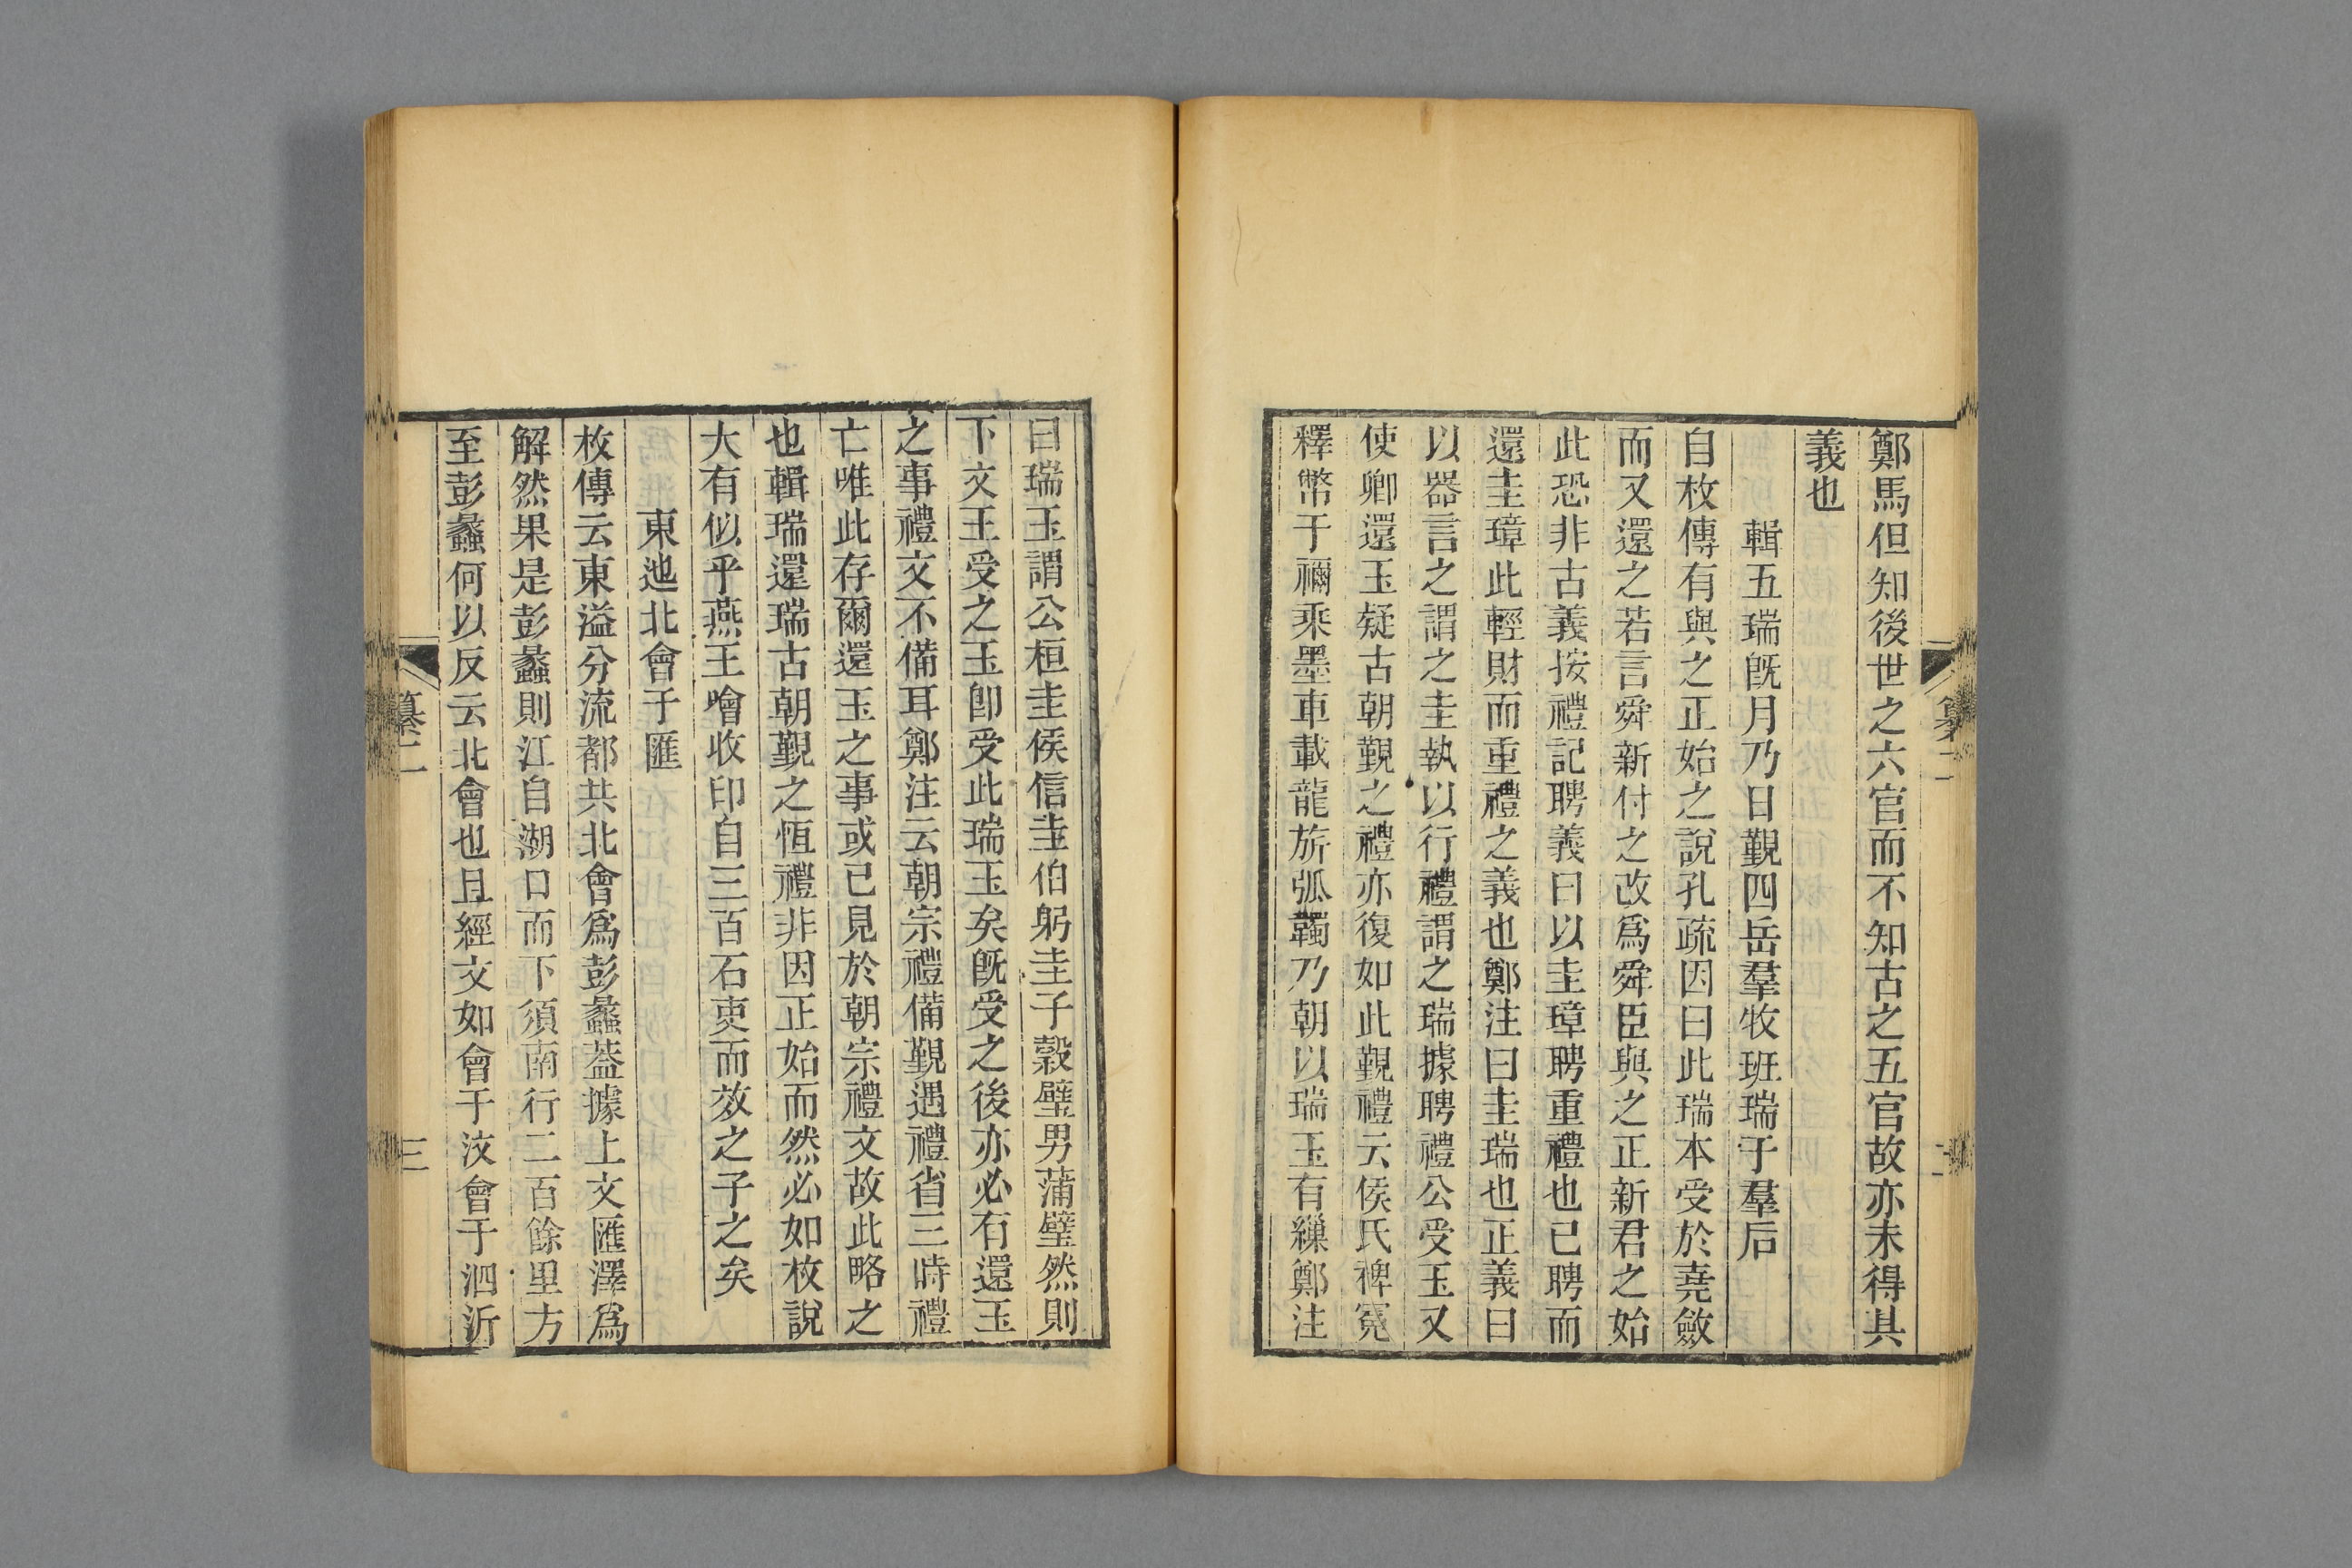 鄭馬但知後世之六官而不知古之五官故亦未得其
義也
輯五瑞旣月乃日覲四岳羣牧班瑞于羣后
自枚傳有與之正始之說孔疏因曰此瑞本受於堯斂
而又還之若言舜新付之改爲舜臣與之正新君之始
此恐非古義按禮記聘義曰以圭璋聘重禮也已聘而
還圭璋此輕財而重禮之義也鄭注曰圭瑞也正義曰
以器言之謂之圭執以行禮謂之瑞據聘禮公受玉又
使卿還玉疑古朝覲之禮亦復如此覲禮云侯氏裨冕
釋幣于禰乘墨車載龍旂弧韣乃朝以瑞玉有繅鄭注
纂二
曰瑞玉謂公桓圭侯信圭伯躬圭子穀璧男蒲璧然則
下文王受之玉卽受此瑞玉矣旣受之後亦必有還玉
之事禮文不備耳鄭注云朝宗禮備覲遇禮省三時禮
亡唯此存爾還玉之事或已見於朝宗禮文故此略之
也輯瑞還瑞古朝覲之恆禮非因正始而然必如枚說
大有似乎燕王噲收印自三百石吏而效之子之矣
東迆北會于匯
枚傳云東溢分流都共北會爲彭蠡葢據上文匯澤爲
解然果是彭蠡則江自湖口而下須南行二百餘里方
至彭蠡何以反云北會也且經文如會于汶會于泗沂
纂二
三